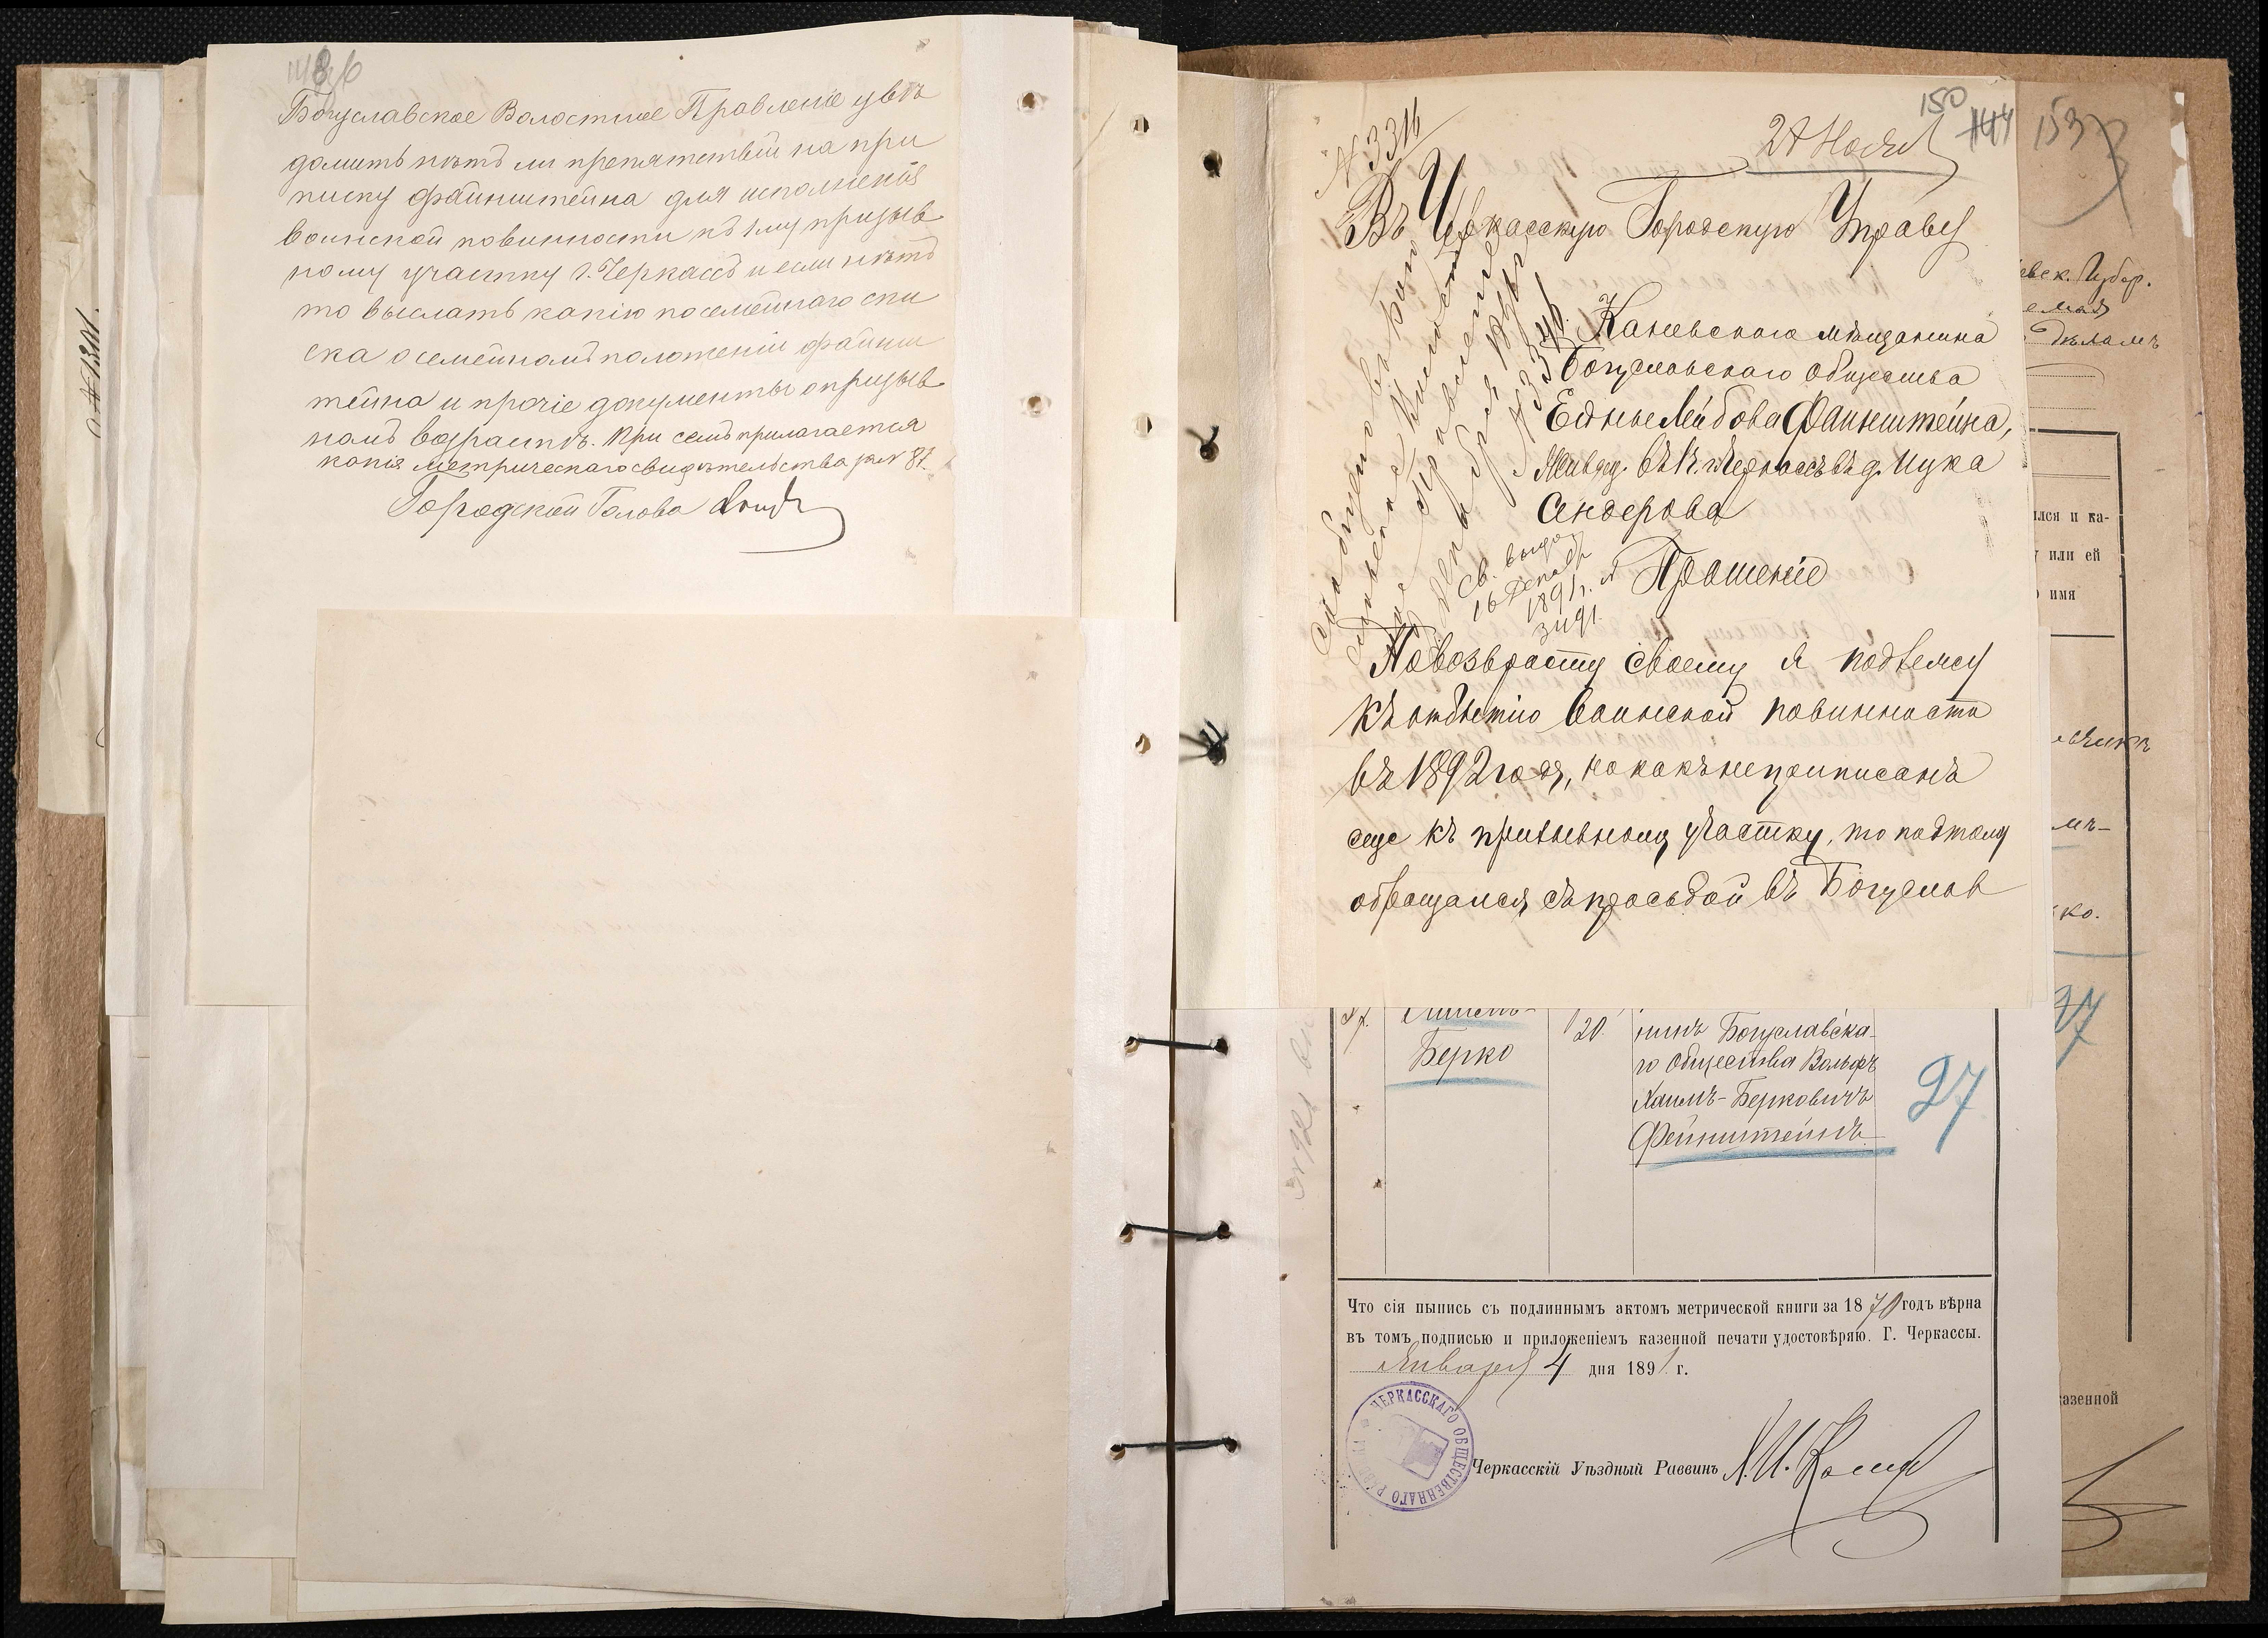 Богуславское Волостное Правленіе увѣ
домить нѣтъ ли препятствій на при
писку Файнштейна для исполненія
воинской повинности къ 1му призыв
ному участку г. Черкассъ и если нѣтъ
то выслать копію посемейнаго спи
ска о семейномъ положеніи Файнш
тейна и прочіе документы о призыв
номъ возрастѣ. При семъ прилагается
копія метрическаго свидѣтельства за № 87.
Городской Голова
№ 1301.
150
144
№ 3316
27 Нояб
Въ Черкасскую Городскую Управу
Каневскаго мѣщанина
Богуславскаго общества
Лейбова Файнштейна,
въ д. Ицка
Сендерова
Прошеніе
№ 3340.
Св. выда
16 Декабр
1891 г.
По возврасту своему я подлежу
къ отбытію воинской повинности
въ 1892 году, но какъ неприписанъ
еще къ призывному участку, то поэтому
обращался съ просьбой въ Богуслав
153
евск. Губер.
дѣламъ
лся и ка-
или ей
имя
ко.
37
казенной
87.
Берко
20.
нинъ Богуславска-
го Общества Вольфъ
Хаимъ-Берковичъ
Фейнштейнъ
27
Что сія выпись съ подлиннымъ актомъ метрической книги за 1870 годъ вѣрна
въ томъ подписью и приложеніемъ казенной печати удостовѣряю. Г. Черкассы.
Января 4 дня 1891 г.
ЧЕРКАССКАГО ОБЩЕСТВЕННАГО РАВВИНА
Черкасскій Уѣздный Раввинъ